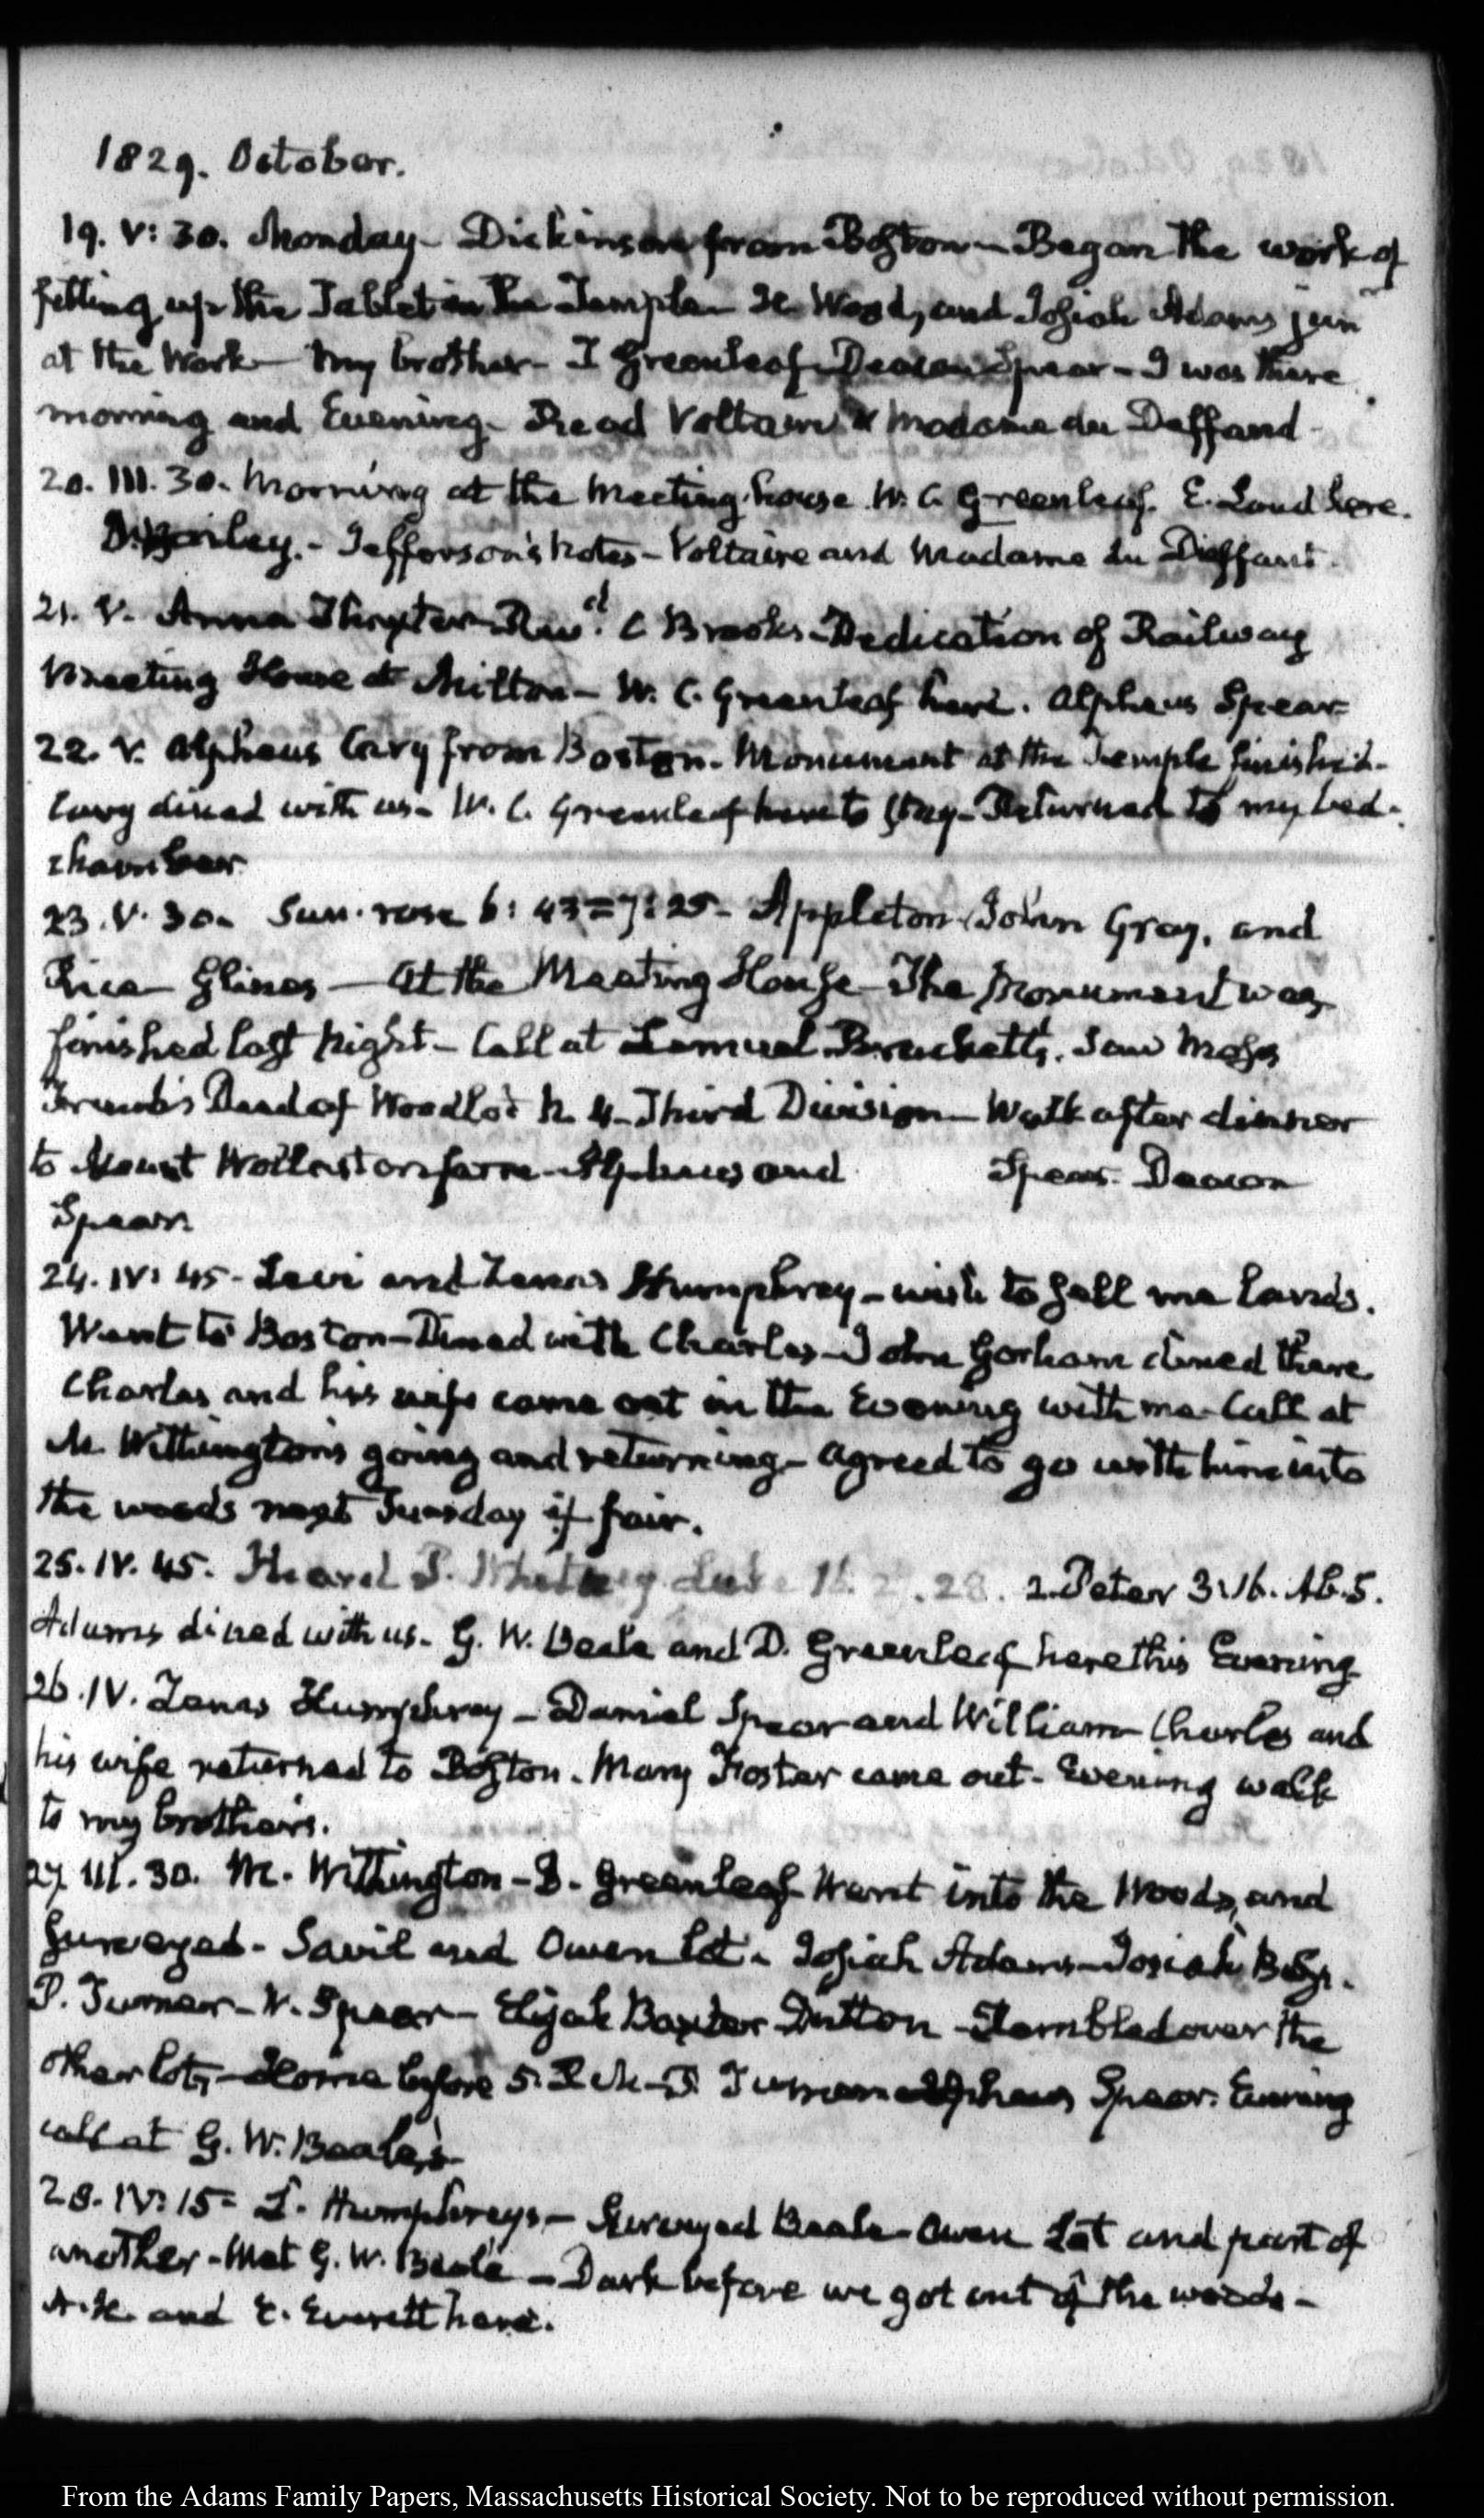 1829. October.
19. V: 30. Monday - Dickinson from Boston - Began the work of
fitting up the Tablet in the Temple - H Wood, and Josiah Adams jun
at the Work - My brother - I Greenleaf - Deacon Spear - I was there
morning and Evening. Read Voltaire & Madame du Deffand -
20. III. 30. Morning at the Meeting-house W. C. Greenleaf. E. Loud here.
D. Bailey. - Jefferson's Notes - Voltaire and Madame du Deffand.
21. V. Anna Thaxter - Revd. C Brooks - Dedication of Railway
Meeting House at Milton - W. C. Greenleaf here. Alpheus Spear
22. V. Alpheus Cary from Boston. Monument at the Temple finished -
Cary dined with us - W. C. Greenleaf here to stay - Returned to my bed-
chamber
23. V. 30. Sun. rose 6: 43 = 7: 25 - Appleton John Gray, and
Rice Glines - At the Meeting House - The Monument was
finished last Night - Call at Lemuel Brackett's. Saw Moses
French's Deed of Woodlot N. 4 - Third Division - Walk after dinner
to Mount Wollaston farm - Alpheus and Spear. Deacon
Spear.
24. IV: 45 - Levi and Lenas Humphrey - wish to sell me lands.
Went to Boston - Dined with Charles - John Gorham dined there
Charles and his wife came out in the Evening with me - Call at
M. Withington's going and returning - agreed to go with him into
the woods next Tuesday if fair.
25. IV. 45. Heard P. Whitney 2. Peter 3. 16.
Adams dined with us. G. W. Beale and D. Greenleaf here this Evening
26. IV. Lenas Humphrey - Daniel Spear and William - Charles and
his wife returned to Boston. Mary Foster came out - Evening walk
to my brother's.
27. III. 30. M. Withington - D. Greenleaf Went into the Woods, and
Surveyed - Savil and Owen lot. Josiah Adams - Josiah Bass.
P. Turner - W. Spear - Elijah Baxter Dutton - Rambled over the
other lots - Home before 5. P. Turner Alpheus Spear. Evening
call at G. W. Beale's -
28. IV: 15 = L. Humphreys - Surveyed Beale - Owen Lot and part of
another - Met G. W. Beale - Dark before we got out of the woods -
A. H. and E. Everett here.
From the Adams Family Papers, Massachusetts Historical Society. Not to be reproduced without permission.